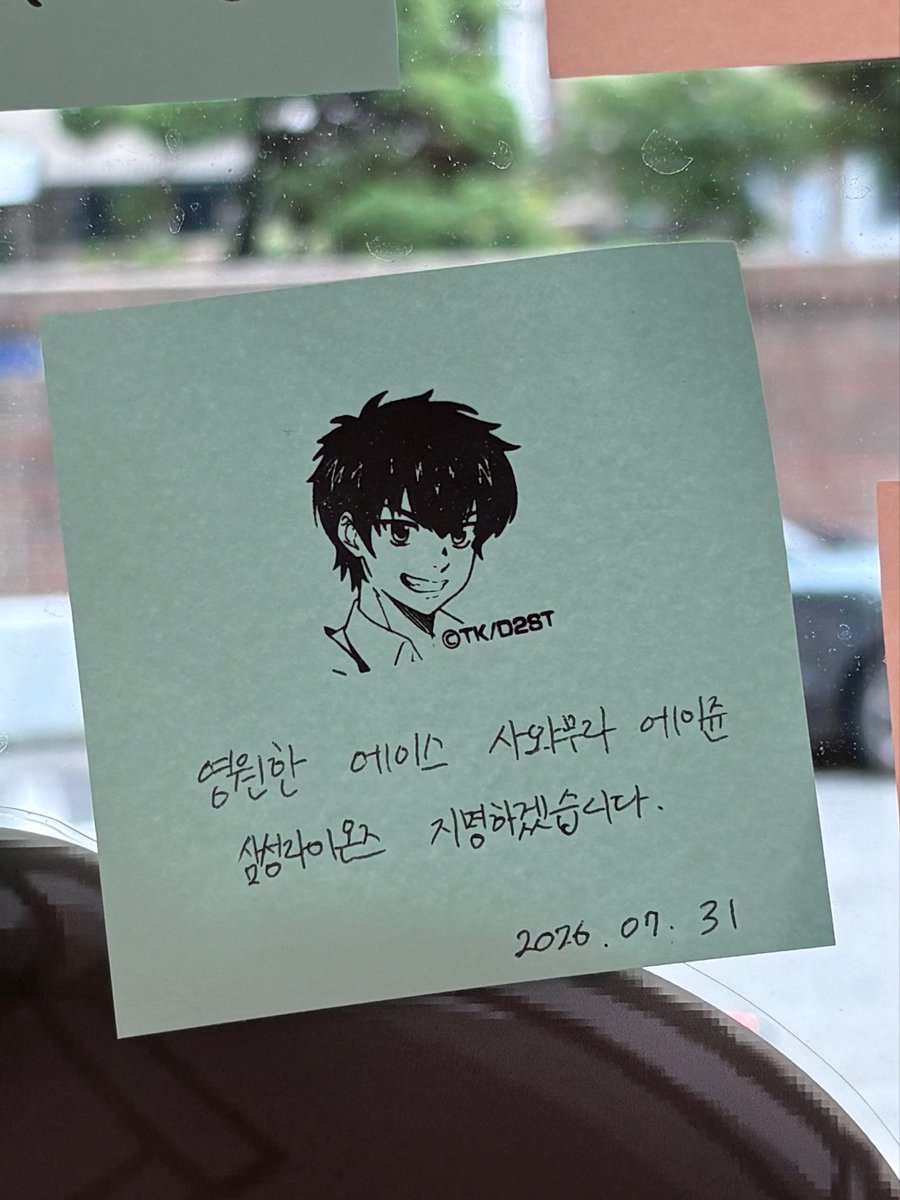 ©TK/D2ST
영원한 에이스 사와무라 에이쥰
삼성라이온즈 지명하겠습니다.
2026.07.31